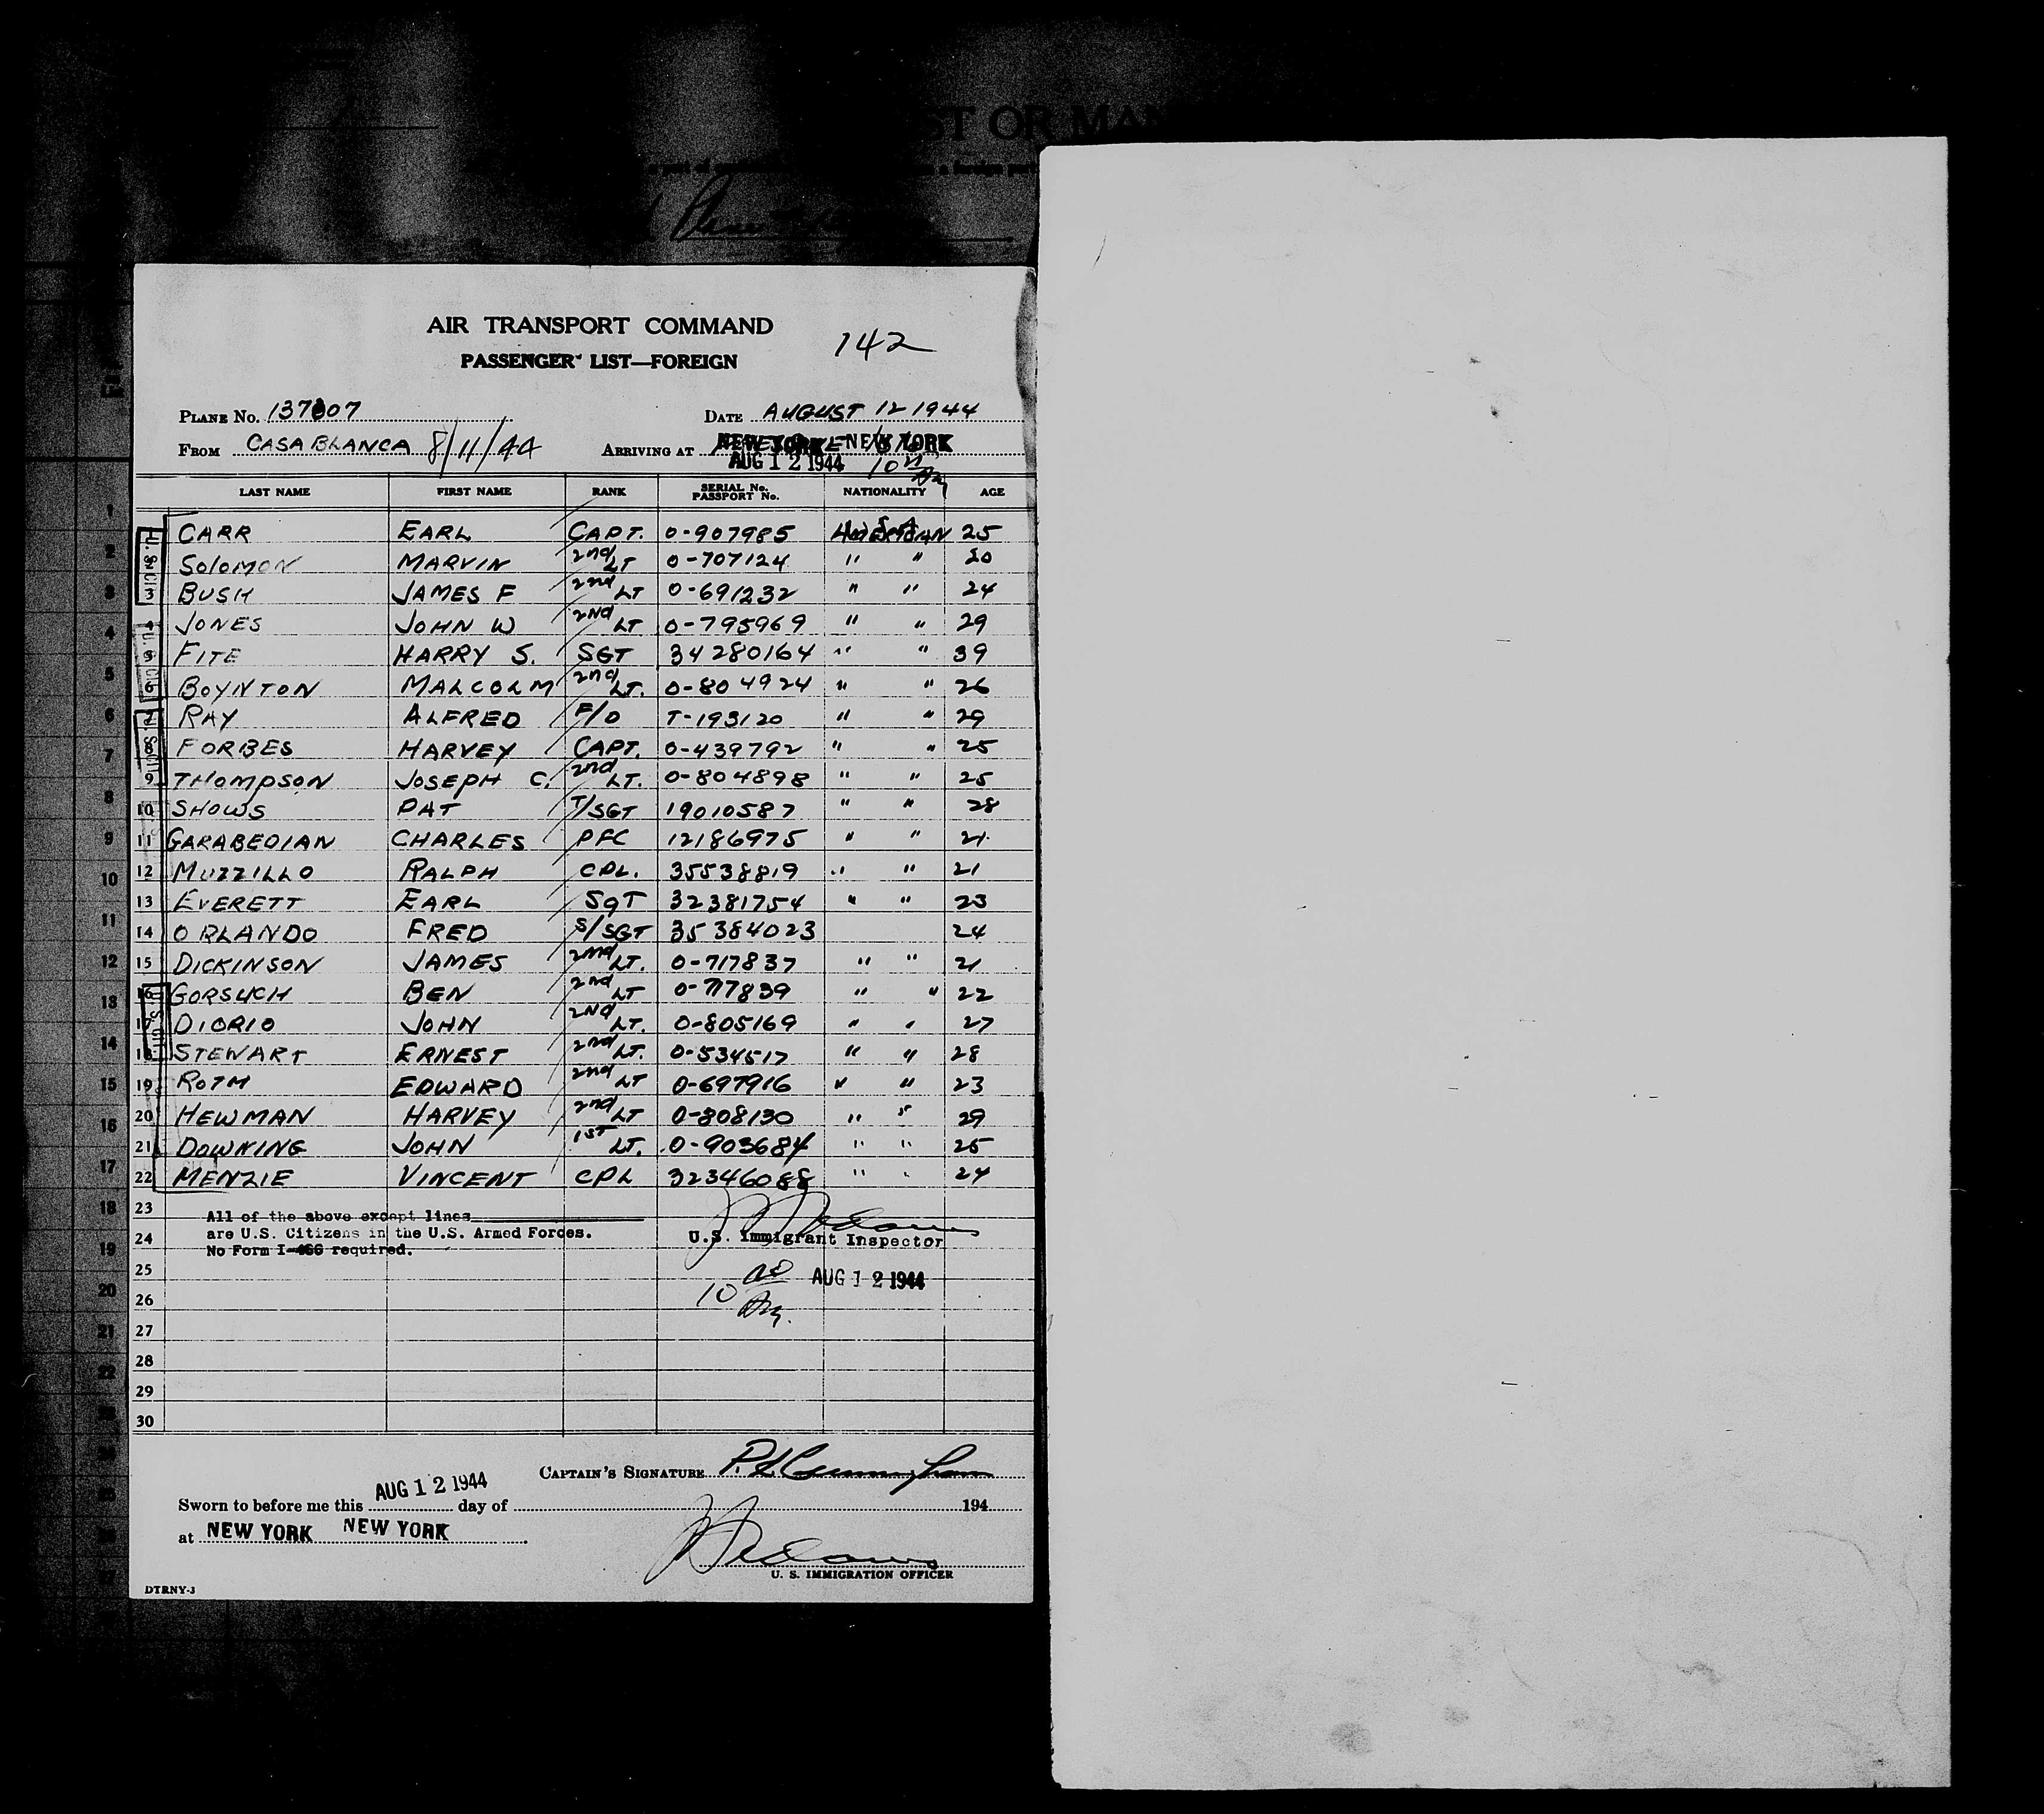 ST OR MAN
AIR TRANSPORT COMMAND
142
PASSENGER LIST—FOREIGN
PLANE No. 137007 DATE AUGUST 12 1944
FROM CASABLANCA 8/11/44 ARRIVING AT NEW YORK NEW YORK
AUG 12 1944
LAST NAME FIRST NAME RANK SERIAL No. PASSPORT No. NATIONALITY AGE
1 CARR EARL CAPT. 0-907985 25
2 SOLOMON MARVIN 2nd LT 0-707124 " " 20
3 BUSH JAMES F 2nd LT 0-691232 " " 24
4 JONES JOHN W 2ND LT 0-795969 " " 29
5 FITE HARRY S. SGT 34280164 " " 39
6 BOYNTON MALCOLM 2nd LT. 0-804924 " " 26
7 RAY ALFRED F/O T-193120 " " 29
8 FORBES HARVEY CAPT. 0-439792 " " 25
9 THOMPSON JOSEPH C. 2nd LT. 0-804898 " " 25
10 SHOWS PAT T/SGT 19010587 " " 28
11 GARABEDIAN CHARLES PFC 12186975 " " 21
12 MUZZILLO RALPH CPL. 35538819 " " 21
13 EVERETT EARL SGT 32381754 " " 23
14 ORLANDO FRED S/SGT 35384023 24
15 DICKINSON JAMES 2nd LT. 0-717837 " " 21
16 GORSUCH BEN 2nd LT 0-717839 " " 22
17 DIORIO JOHN 2ND LT. 0-805169 " " 27
18 STEWART ERNEST 2nd LT. 0-534517 " " 28
19 ROTH EDWARD 2nd LT 0-697916 " " 23
20 HEWMAN HARVEY 2nd LT 0-808130 " " 29
21 DOWNING JOHN 1ST LT. 0-903684 " " 25
22 MENZIE VINCENT CPL 32346088 " " 24
23 All of the above except lines
24 are U.S. Citizens in the U.S. Armed Forces. U.S. Immigrant Inspector
No Form I-466 required.
25 AUG 12 1944
26
27
28
29
30
CAPTAIN'S SIGNATURE
Sworn to before me this AUG 12 1944 day of 194
at NEW YORK NEW YORK
U. S. IMMIGRATION OFFICER
DTRNY-3